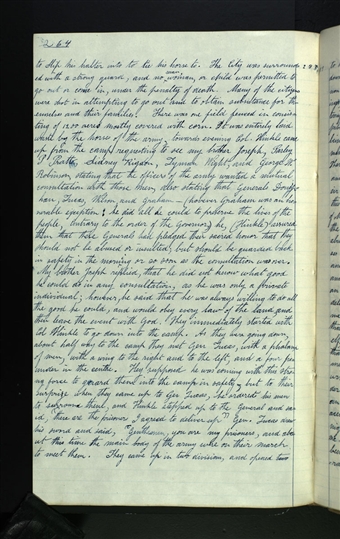 264
to slip his halter into to tie his horse to. The City was surround-
ed with a strong guard, and no man, woman, or child was permitted to
go out or come in, under the penalty of death. Many of the citizens
were shot in attempting to go out to obtain subsistance for them-
selves and their families. There was one field fenced in consis-
ting of 1200 acres mostly covered with corn. It was entirely laid
waste by the horses of the army, towards evening Col. Hinkle came
up from the camp requesting to see my brother Joseph, Parley
P. Pratt, Sidney Rigdon, Lyman Wight, and George W.
Robinson, stating that the officers of the army wanted a mutual
consultation with those men, also stating that Generals Doniph-
an, Lucas, Wilson, and Graham (however Graham was an hon-
orable exception; he did all he could to preserve the lives of the
people, contrary to the order of the governor) he, (Hinkle) assured
them that these Generals had pledged their sacred honor that they
should not be abused or insulted, but should be guarded back
in safety in the morning or so soon as the consultation was over.
My brother Joseph replied, that he did not know what good
he could do in any consultation, as he was only a private
individual; however, he said that he was always willing to do all
the good he could, and would obey every law of the land and
then leave the event with God. They immediately started with
Col Hinkle to go down into the camp. As they were going down
about half way to the camp they met Gen Lucas, with a phalanx
of men, with a wing to the right and to the left, and a four poun-
der in the centre. They supposed he was coming with this stro-
ng force to guard them into the camp in safety, but to their
surprise when they came up to Gen Lucas, he ordered his men
to surround them, and Hinkle stepped up to the General and sa-
id, "these are the prisoners I agreed to deliver up." Gen. Lucas drew
his sword and said, "Gentlemen, you are my prisoners, and abo-
ut this time the main body of the army were on their march
to meet them. They came up in two divisions, and opened